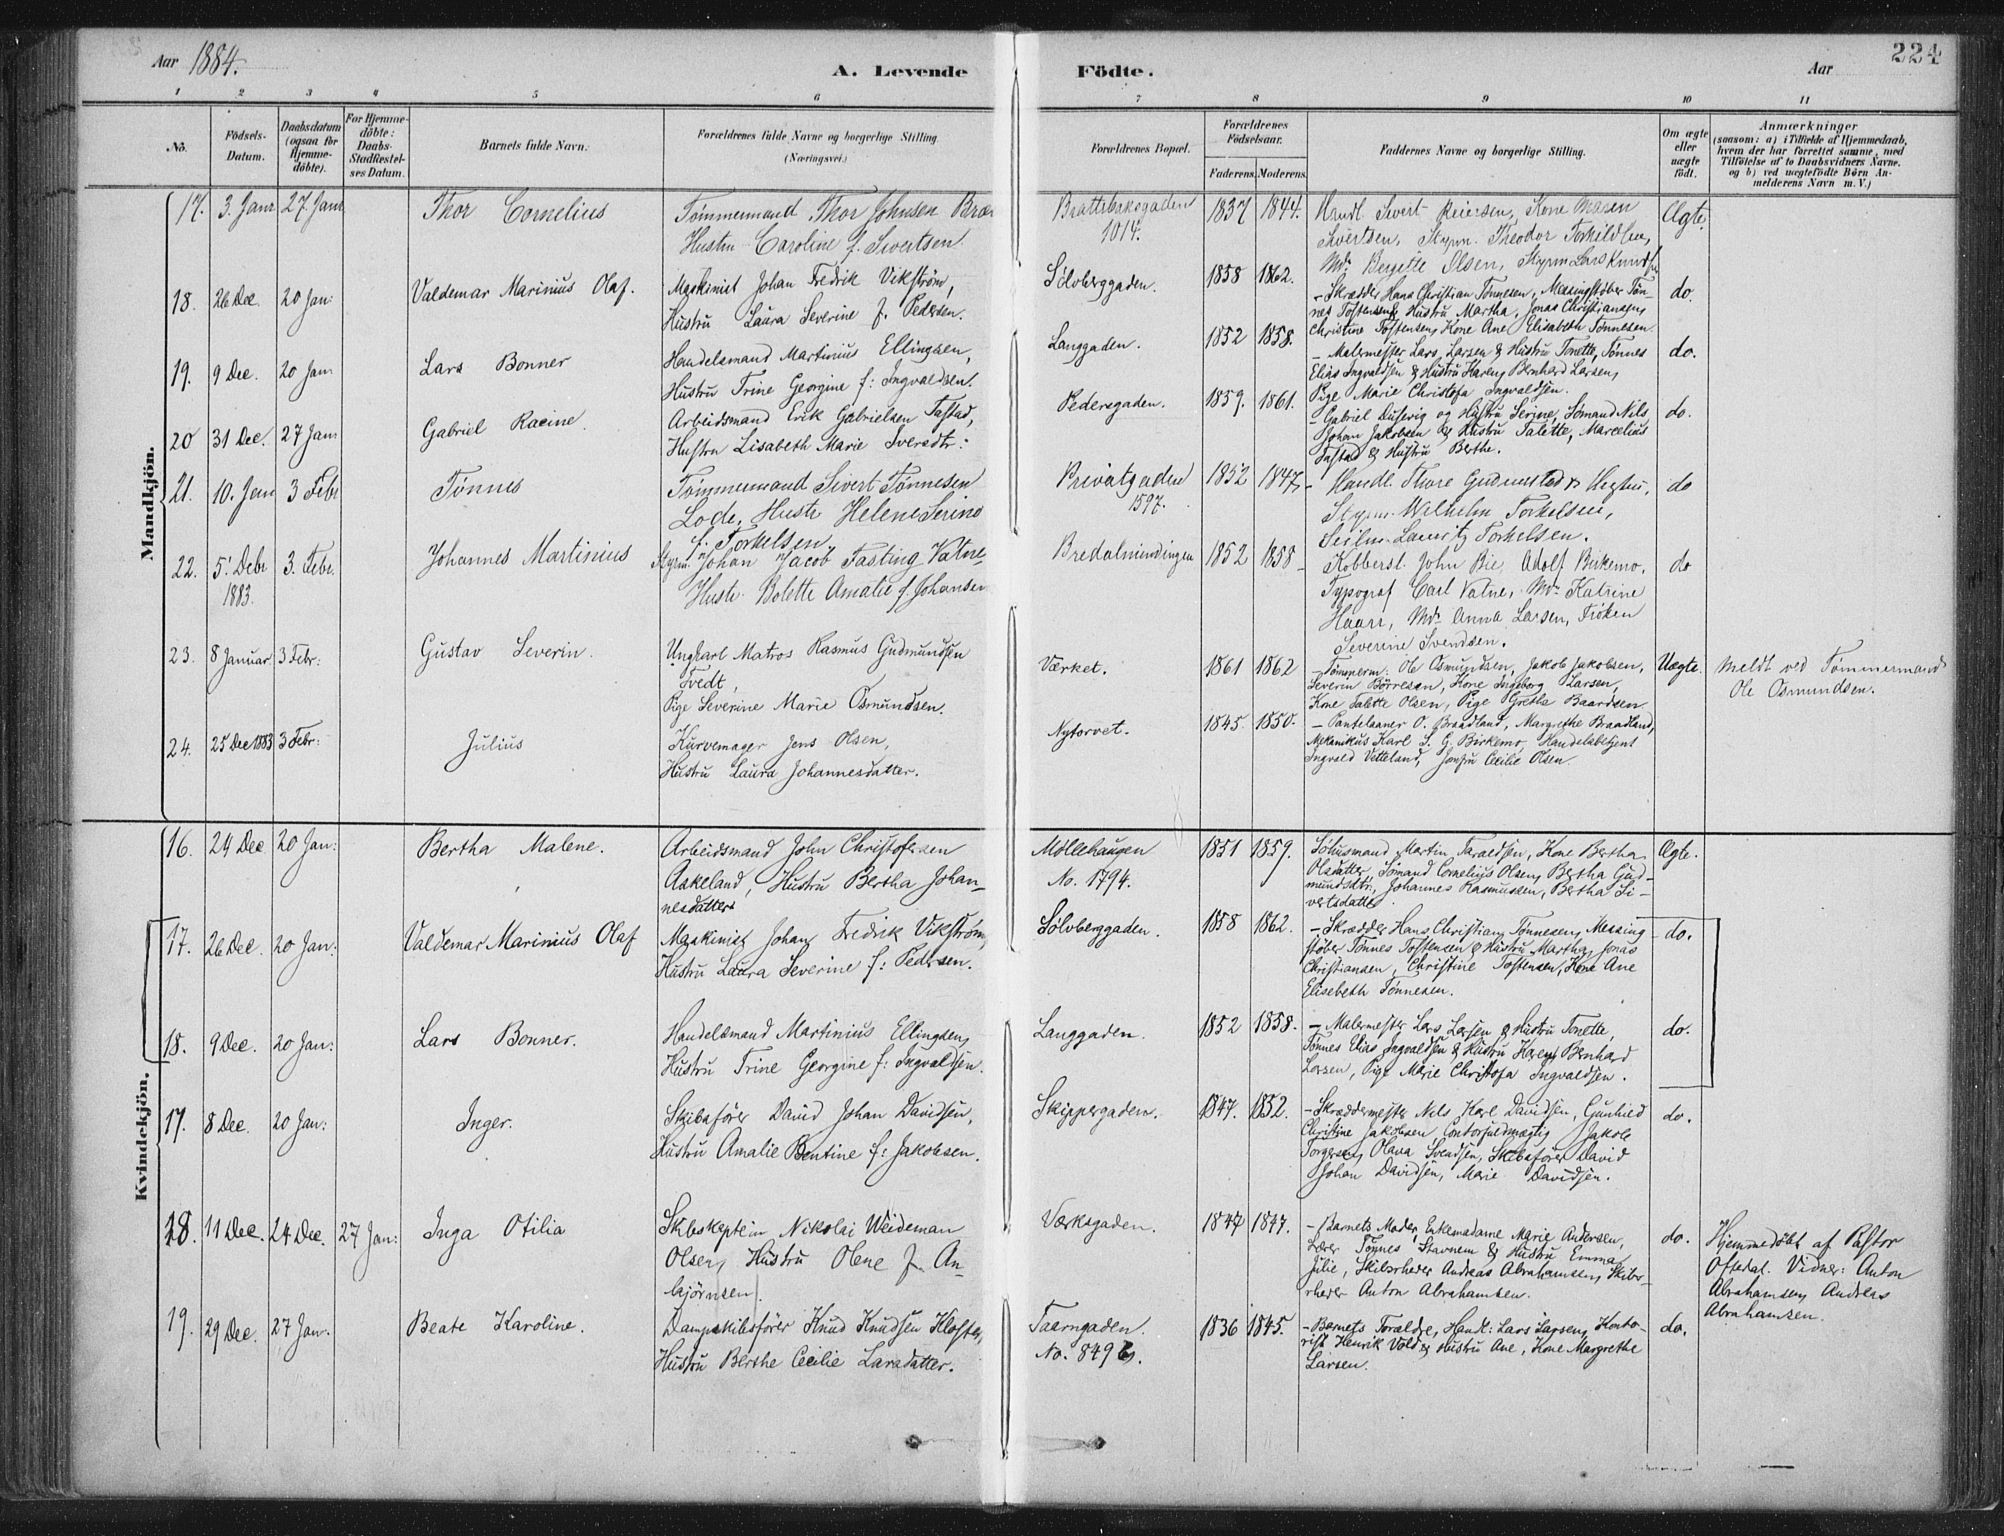 Aar 1884.
A. Levende Födte.
Aar
224
1 2 3 4 5 6 7 8 9 10 11
No.
Födsels-
Datum.
Daabsdatum
(ogsaa for
Hjemme-
döbte).
For Hjemme-
döbte:
Daabs-
Stadfæstel-
ses Datum.
Barnets fulde Navn.
Forældrenes fulde Navne og borgerlige Stilling
(Næringsvei.)
Forældrenes Bopæl.
Forældrenes
Födselsaar.
Faderens. Moderens.
Faddernes Navne og borgerlige Stilling.
Om ægte
eller
uægte
födt.
Anmærkninger
(saasom: a) i Tilfælde af Hjemmedaab,
hvem der har forrettet samme, med
Tilföielse af to Daabsvidners Navne,
og b) ved uægtefödte Börn An-
melderens Navn m. V.)
Mandkjön.
17. 3. Janr 27. Janr Thor Cornelius
Tømmermand Thor Johnsen
Hustru Caroline f. Sivertsen
Brattebaksgaden
1014.
1837 1844.
Handl Sivert Reiersen, Kone Maren
Sivertsen, Styrm. Theodor Torkildsen,
Md. Bergette Olsen, Styrm Lars Knudsen
Ægte.
18. 26 Dec 20 Jan: Valdemar Marinius Olaf.
Maskinist Johan Fredrik Vikstrøm,
Hustru Laura Severine f. Pedersen.
Sølvberggaden.
1858 1862.
- Skrædder Hans Christian Tønnesen, Messingstøber Tøn-
nes Tostensen & Hustru Martha, Jonas Christiansen,
Christine Tostensen, Kone Ane Elisabeth Tønnesen.
do.
19. 9 Dec. 20 Jan Lars Bonner
Handelsmand Martinius Ellingsen,
Hustru Trine Georgine f: Ingvaldsen.
Langgaden.
1852 1858.
- Malermester Lars Larsen & Hustru Tonette, Tønnes
Elias Ingvaldsen & Hustru Karen, Bernhard Larsen,
Pige Marie Christofa Ingvaldsen.
do.
20 31 Dec. 27 Jan Gabriel Racine.
Arbeidsmand Erik Gabrielsen Tastad,
Hustru Lisabeth Marie Sveredtr:
Pedersgaden.
1859. 1861.
- Gabriel Dusevig og Hustru Serine, Sømand Nils
Johan Jakobsen & Hustru Talette, Marcelius
Tastad & Hustru Berthe.
do.
21. 10. Jan 3 Febr Tønnes
Tømmermand Sivert Tønnesen
Lode, Hustr Helene Serine
f. Torkelsen
Privatgaden
1597.
1852 1847
- Handl. Thore Gudmestad & Hustru,
Styrm. Wilhelm Torkelsen,
Seilm. Lauritz Torkelsen.
do
22. 5' Debr 3. Febr.
1883.
Johannes Martinius
Styrm. Johan Jacob Fasting Vatne
Hustr. Bolette Amalie f. Johansen
Bredalmindingen
1852 1858
- Kobberst. John Bie, Adolf Birkemo,
Typograf Carl Vatne, Md. Katrine
Haarr, Md. Anna Larsen, Frøken
Severine Svendsen.
do
23. 8 Januar 3 Febr: Gustav Severin.
Ungkarl Matros Rasmus Gudmundsen
Tvedt,
Pige Severine Marie Osmundsen.
Værket.
1861 1862
- Tømmerm. Ole Osmundsen, Jakob Jakobsen,
Severin Børresen, Kone Ingeborg Larsen,
Kone Talette Olsen, Pige Grethe Baardsen.
Uægte.
Meldt ved Tømmermand
Ole Osmundsen.
24. 25 Dec 1883 3 Febr: Julius
Kurvemager Jens Olsen,
Hustru Laura Johannesdatter.
Nytorvet.
1845 1850.
- Pantelaaner O. Braadland, Margrethe Braadland,
Mekanikus Karl S. G. Birkemo, Handelsbetjent
Ingvald Vetteland, Jomfru Cecilie Olsen.
Kvindekjön.
16. 24 Dec 20 Jan: Bertha Malene.
Arbeidsmand John Christofersen
Aakeland, Hustru Bertha Johan-
nesdatter.
Møllehaugen
No. 1794.
1851 1859.
Søhusmand Martin Taraldsen, Kone Bertha
Olsdatter, Sømand Cornelius Olsen, Bertha Gud-
mundsdtr, Johannes Rasmussen, Bertha Si-
vertsdatter.
Ægte.
17. 26 Dec. 20 Jan: Valdemar Marinius Olaf
Maskinist Johan Fredrik Vikstrøm,
Hustru Laura Severine f: Pedersen.
Sølvberggaden.
1858 1862.
- Skrædder Hans Christian Tønnesen, Messing
støber Tønnes Tostensen & Hustru Martha, Jonas
Christiansen, Christine Tostensen, Kone Ane
Elisebeth Tønnesen.
do.
18. 9 Dec. 20 Jan: Lars Bonner.
Handelsmand Martinius Ellingsen,
Hustru Trine Georgine f: Ingvaldsen.
Langgaden.
1852 1858.
- Malermester Lars Larsen & Hustru Tonette,
Tønnes Elias Ingvaldsen & Hustru Karen, Bernhard
Larsen, Pige Marie Christofa Ingvaldsen.
do.
17. 8 Dec. 20 Jan: Inger.
Skibsfører David Johan Davidsen,
Hustru Amalie Bentine f: Jakobsen.
Skippergaden.
1847. 1852.
- Skræddermester Nils Karl Davidsen, Gunhild
Christine Jakobsen, Contorfuldmægtig Jakob
Torgersen, Olava Svendsen, Skibsfører David
Johan Davidsen, Marie Davidsen.
do.
18. 11 Dec. 24 Dec. 27 Jan: Inga Otilia
Skibskaptein Nikolai Weideman
Olsen, Hustru Olene f. An-
bjørnsen.
Værksgaden.
1847 1847.
- Barnets Moder, Enkemadame Marie Andersen,
Lærer Tønnes Stavnem & Hustru Emma
Julie, Skibsrheder Andreas Abrahamsen, Skibs-
rheder Anton Abrahamsen.
do.
Hjemmedøbt af Pastor
Oftedal. Vidner: Anton
Abrahamsen, Andreas
Abrahamsen.
19. 29 Dec. 27 Jan. Beate Karoline.
Dampskibsfører Knud Knudsen Kloster,
Hustru Berthe Cecilie Larsdatter.
Taarngaden.
No. 849 b.
1836 1845.
- Barnets Forældre, Handl: Lars Larsen, Konto-
rist Henrik Vold & Hustru Ane, Kone Margrethe
Larsen.
do.